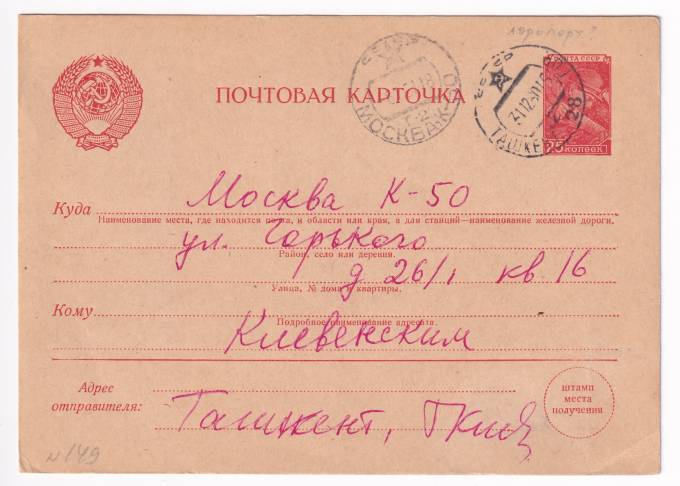 аэропорт?
ПОЧТА СССР
ПОЧТОВАЯ КАРТОЧКА
МОСКВА
ТАШКЕНТ
28
25 КОПЕЕК
Куда Москва К-50
Наименование места, где находится почта, и области или края, а для станций—наименование железной дороги.
ул. Горького
Район, село или деревня.
д 26/1 кв 16
Улица, № дома и квартиры.
Кому
Подробное наименование адресата.
Киевенским
Адрес
отправителя:
Ташкент,
штамп
места
получения
N 149